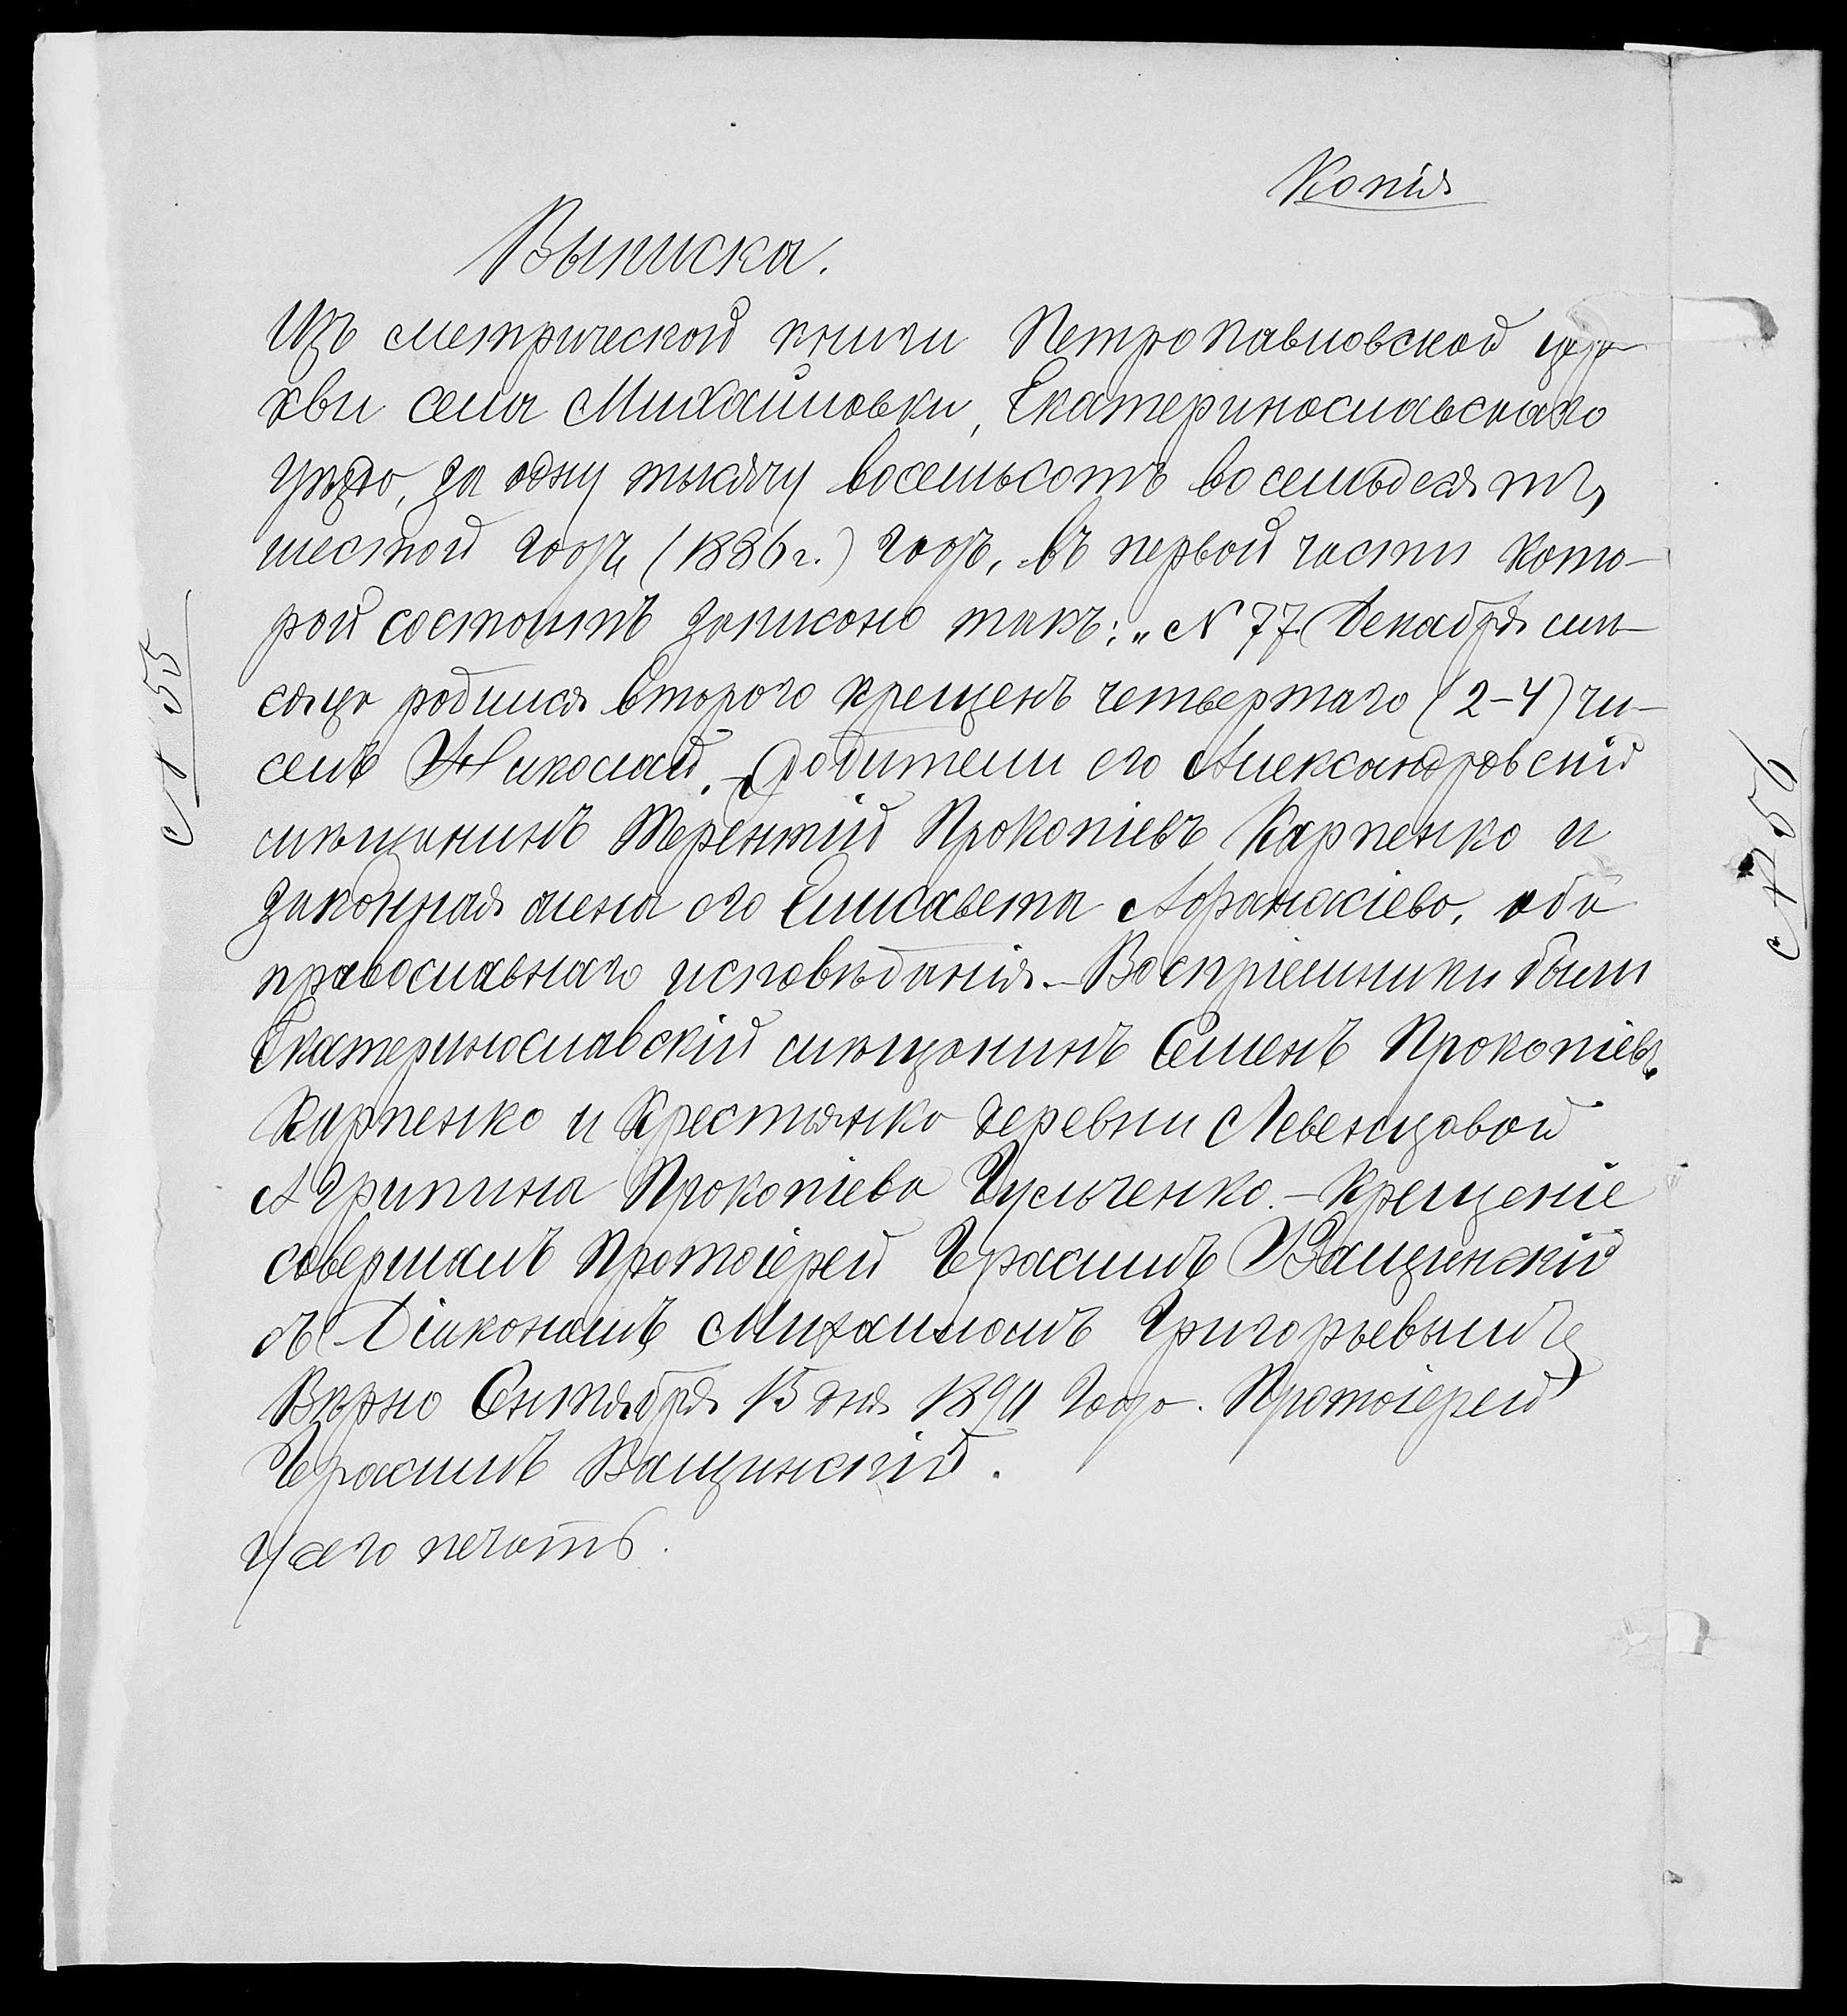 Копія
Выписка.
Изъ метрической книги Петропавловской цер-
кви села Михайловки, Екатеринославскаго
уѣзда, за одну тысячу восемьсотъ восемьдесятъ
шестой годъ (1886 г.) годъ, въ первой части кото-
рой состоитъ записано такъ: „№ 77. Декабря мѣ-
сяца родился второго крещенъ четвертаго (2-4) чи-
селъ Николай. - Родители его Александровскій
мѣщанинъ Терентій Прокопіевъ Карпенко и
законная жена его Елисавета Афанасіева, оба
православнаго исповѣданія. - Воспріемники были
Екатеринославскій мѣщанинъ Семенъ Прокопіевъ
Карпенко и крестьянка деревни Левенцовой
Агрипина Прокопіева Гусьченко. - Крещеніе
совершалъ Протоіерей Герасимъ Ващинскій
съ Діакономъ Михаиломъ Григорьевымъ
Вѣрно Сентября 15 дня год. Протоіерей
Герасимъ Ващинскій.
У сего печать.
№ 55
№ 56